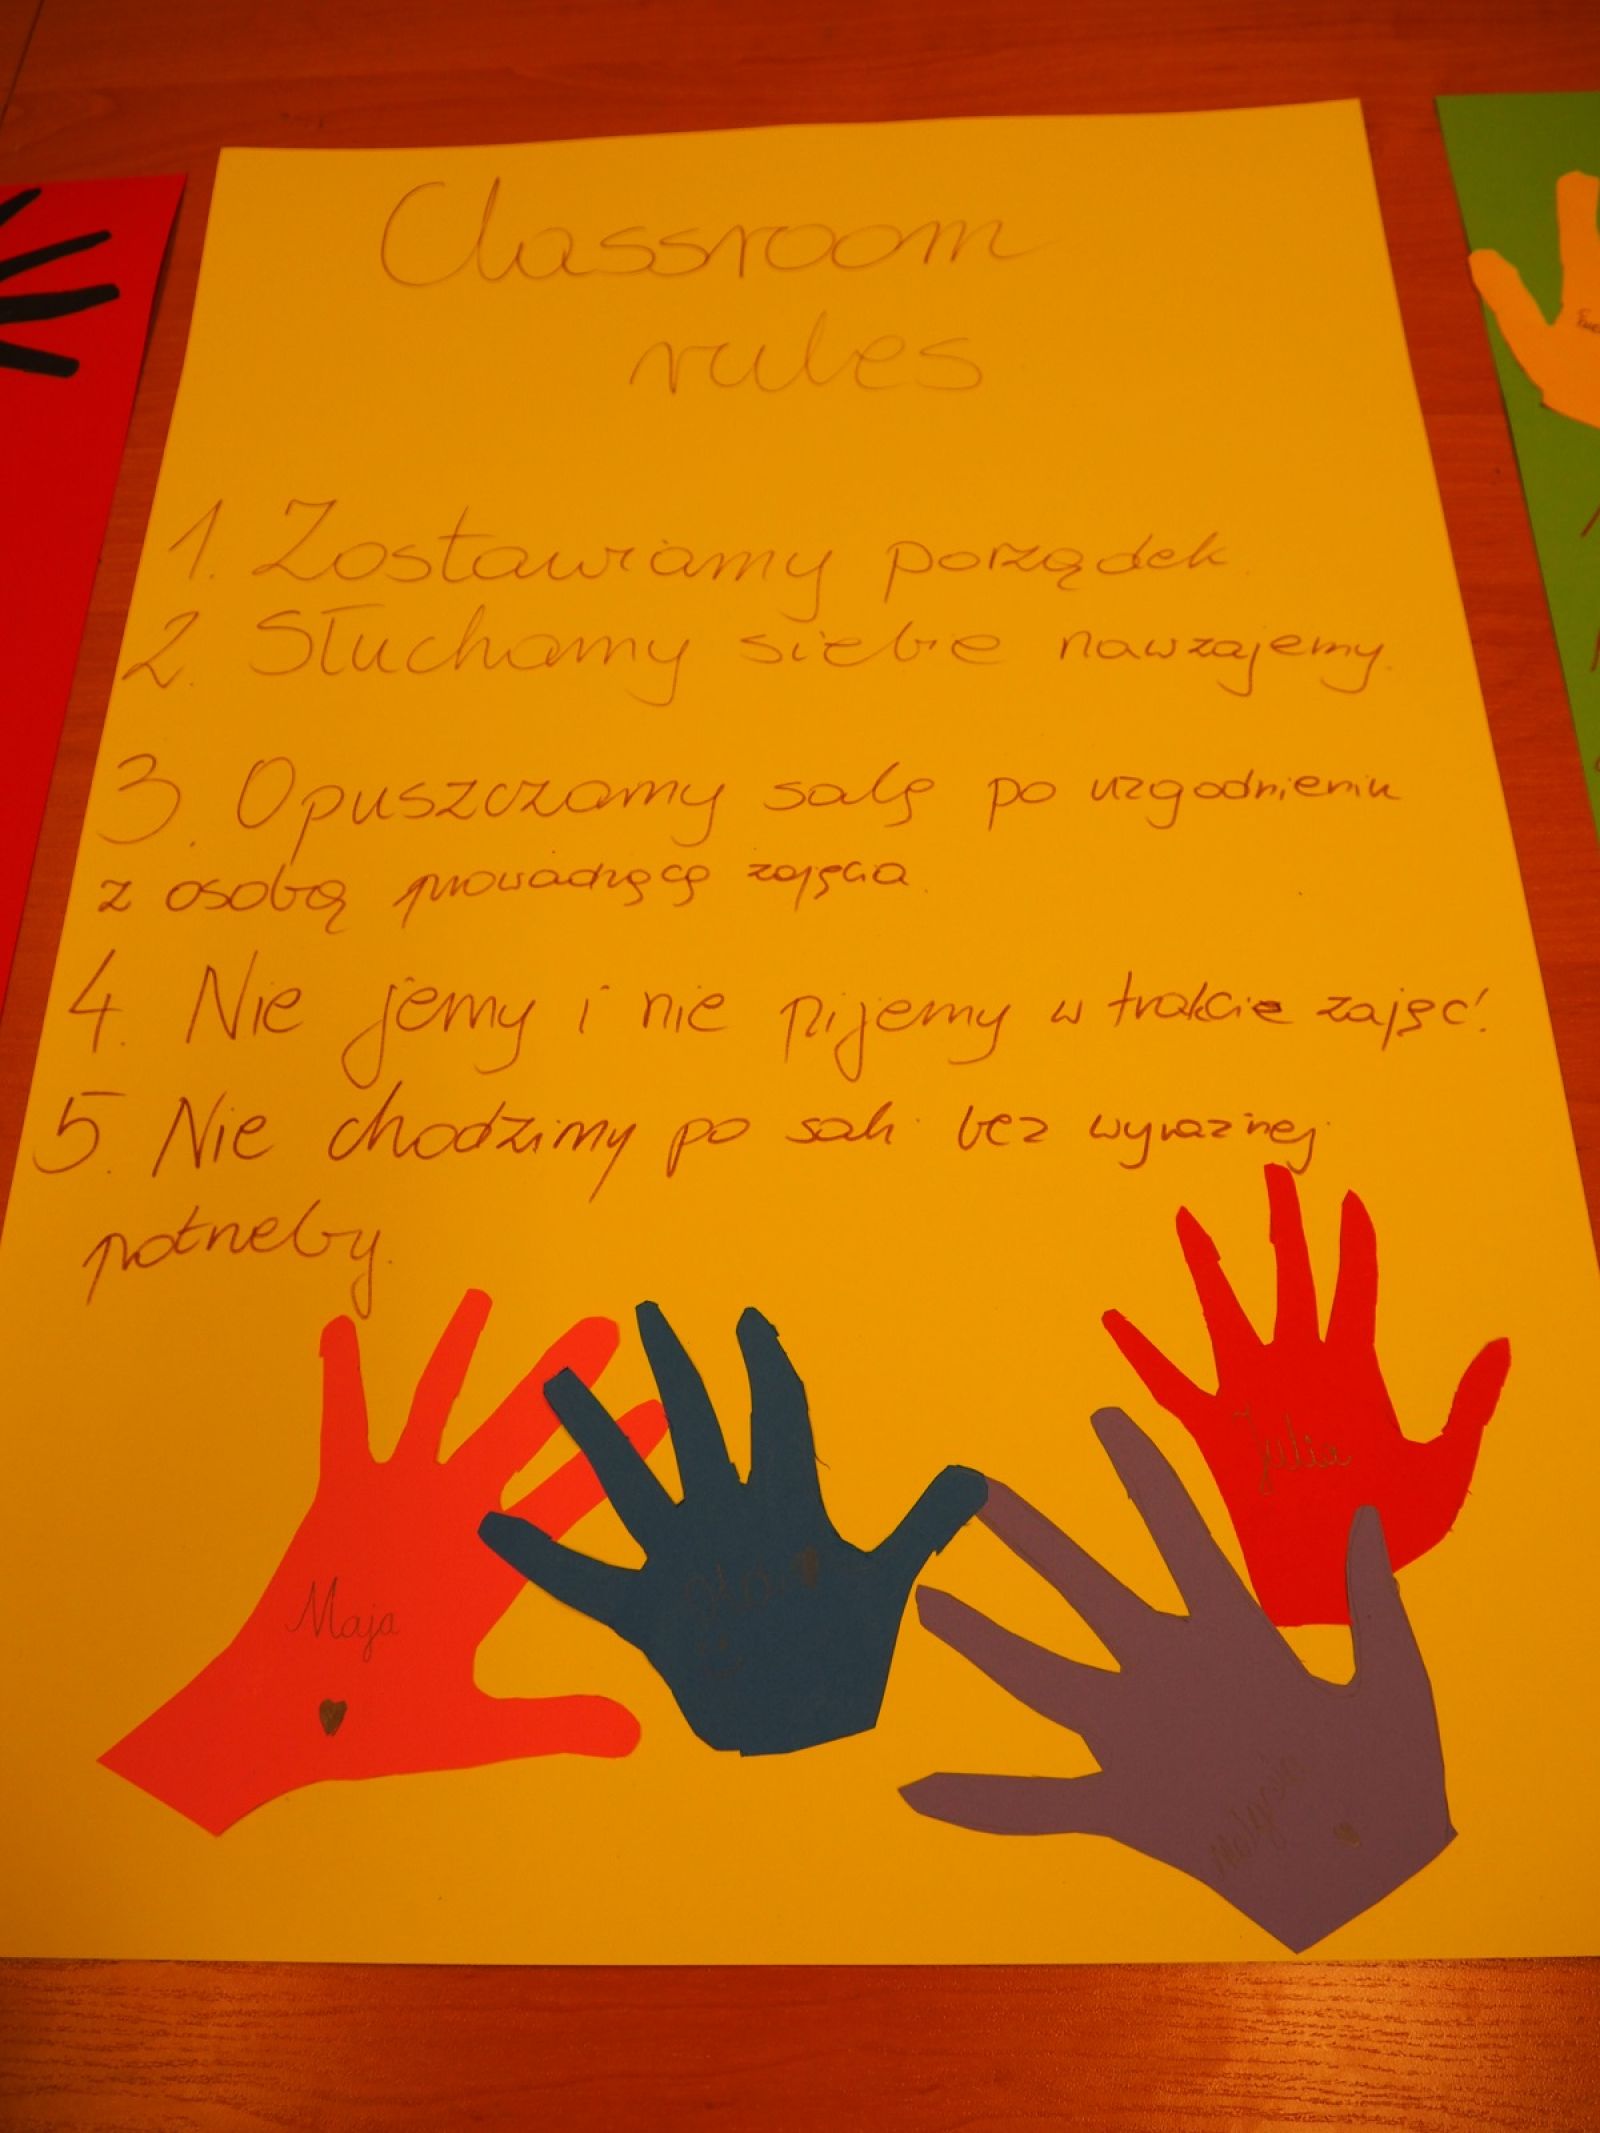 Classroom
rules
1. Zostawiamy porządek
2. Słuchamy siebie nawzajemy.
3. Opuszczamy salę po uzgodnieniu
z osobą prowadzącą zajęcia.
4. Nie jemy i nie pijemy w trakcie zajęć!
5. Nie chodzimy po sali bez wyraźnej
potrzeby.
Julia
Maja
Matysia